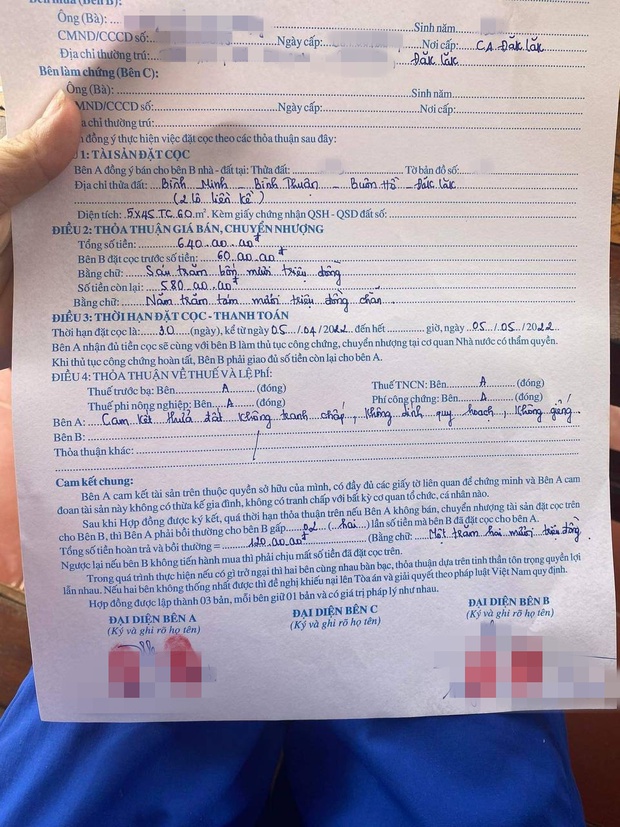 Bên mua (Bên B):
Ông (Bà): Sinh năm
CMND/CCCD số: Ngày cấp: Nơi cấp: CA Đăk lăk
Địa chỉ thường trú: Đăk lăk
Bên làm chứng (Bên C):
Ông (Bà): Sinh năm
CMND/CCCD số: Ngày cấp: Nơi cấp:
chỉ thường trú:
đồng ý thực hiện việc đặt cọc theo các thỏa thuận sau đây:
1: TÀI SẢN ĐẶT CỌC
Bên A đồng ý bán cho bên B nhà - đất tại: Thửa đất: Tờ bản đồ số:
Địa chỉ thửa đất: Bình Minh - Bình Thuận - Buôn Hồ - Đăk lăk
(2 lô liền kề)
Diện tích: 5x45.TC.60.m². Kèm giấy chứng nhận QSH - QSD đất số:
ĐIỀU 2: THỎA THUẬN GIÁ BÁN, CHUYỂN NHƯỢNG
Tổng số tiền: 640.00.00đ
Bên B đặt cọc trước số tiền: 60.00.00đ
Bằng chữ: Sáu trăm bốn mươi triệu đồng
Số tiền còn lại: 580.00.00đ
Bằng chữ: Năm trăm tám mươi triệu đồng chẵn
ĐIỀU 3: THỜI HẠN ĐẶT CỌC - THANH TOÁN
Thời hạn đặt cọc là: 30 (ngày), kể từ ngày 05 / 04 / 2022 đến hết giờ, ngày 05 / 05 / 2022
Bên A nhận đủ tiền cọc sẽ cùng với bên B làm thủ tục công chứng, chuyển nhượng tại cơ quan Nhà nước có thẩm quyền.
Khi thủ tục công chứng hoàn tất, Bên B phải giao đủ số tiền còn lại cho bên A.
ĐIỀU 4: THỎA THUẬN VỀ THUẾ VÀ LỆ PHÍ:
Thuế trước bạ: Bên A (đóng) Thuế TNCN: Bên A (đóng)
Thuế phi nông nghiệp: Bên A (đóng) Phí công chứng: Bên A (đóng)
Bên A: Cam kết thửa đất không tranh chấp, không dính quy hoạch, không giếng
Bên B:
Thỏa thuận khác:
Cam kết chung:
Bên A cam kết tài sản trên thuộc quyền sở hữu của mình, có đầy đủ các giấy tờ liên quan để chứng minh và Bên A cam
đoan tài sản này không có thừa kế gia đình, không có tranh chấp với bất kỳ cơ quan tổ chức, cá nhân nào.
Sau khi Hợp đồng được ký kết, quá thời hạn thỏa thuận trên nếu Bên A không bán, chuyển nhượng tài sản đặt cọc trên
cho Bên B, thì Bên A phải bồi thường cho bên B gấp 02 (hai) lần số tiền mà bên B đã đặt cọc cho bên A.
Tổng số tiền hoàn trả và bồi thường = 120.00.00đ (Bằng chữ: Một trăm hai mươi triệu đồng
Ngược lại nếu bên B không tiến hành mua thì phải chịu mất số tiền đã đặt cọc trên.
Trong quá trình thực hiện nếu có gì trở ngại thì hai bên cùng nhau bàn bạc, thỏa thuận dựa trên tinh thần tôn trọng quyền lợi
lẫn nhau. Nếu hai bên không thống nhất được thì đề nghị khiếu nại lên Tòa án và giải quyết theo pháp luật Việt Nam quy định.
Hợp đồng được lập thành 03 bản, mỗi bên giữ 01 bản và có giá trị pháp lý như nhau.
ĐẠI DIỆN BÊN A ĐẠI DIỆN BÊN C ĐẠI DIỆN BÊN B
(Ký và ghi rõ họ tên) (Ký và ghi rõ họ tên) (Ký và ghi rõ họ tên)